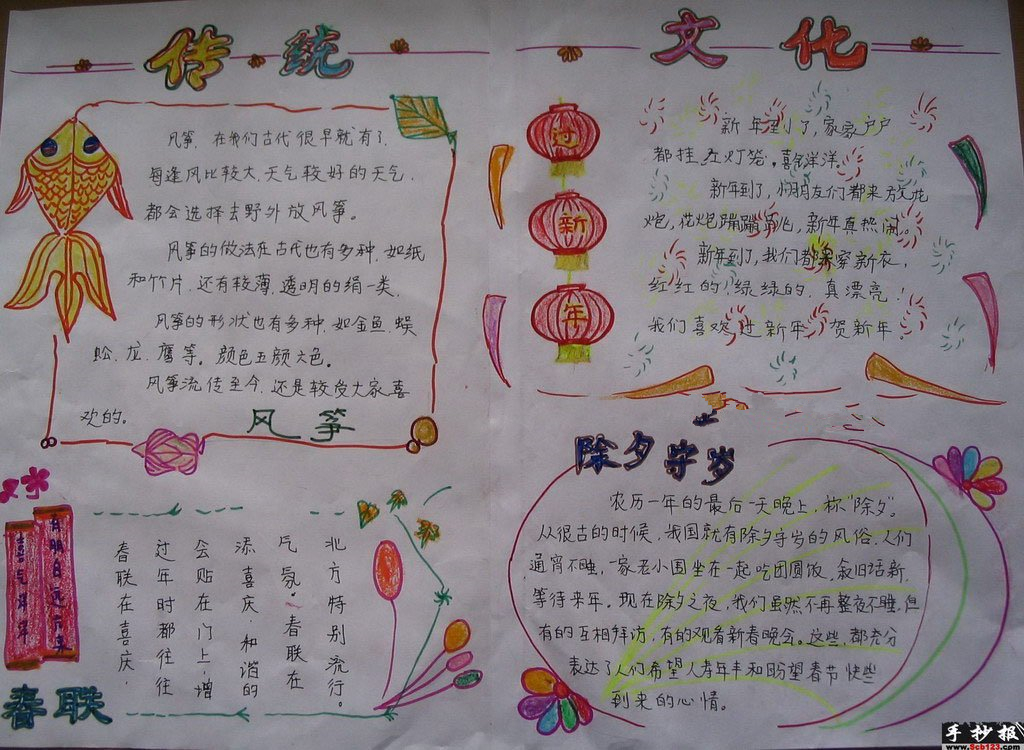 传统 文化
风筝，在我们古代很早就有了，
每逢风比较大，天气较好的天气，
都会选择去野外放风筝。
风筝的做法在古代也有多种，如纸
和竹片，还有较薄，透明的绢一类，
风筝的形状也有多种，如金鱼、蜈
蚣、龙、鹰等。颜色五颜六色。
风筝流传至今，还是较受大家喜
欢的。
风筝
过
新
年
新年到了，家家户户
都挂红灯笼。喜气洋洋。
新年到了，小朋友们都来放龙
炮，花炮蹦蹦跳，新年真热闹。
新年到了，我们都来穿新衣，
红红的，绿绿的，真漂亮，
我们喜欢过新年，贺新年。
喜气洋洋
春联
春联在喜庆，
过年时都往往
会贴在门上，增
添喜庆、和谐的
气氛。春联在
北方特别流行。
除夕守岁
农历一年的最后一天晚上，称“除夕”。
从很古的时候，我国就有除夕守岁的风俗，人们
通宵不睡，一家老小围坐在一起吃团圆饭，叙旧话新，
等待来年。现在除夕之夜，我们虽然不再整夜不睡，但
有的互相拜访，有的观看新春晚会。这些，都充分
表达了人们希望人寿年丰和盼望春节快些
到来的心情。
手抄报
www.Scb123.com